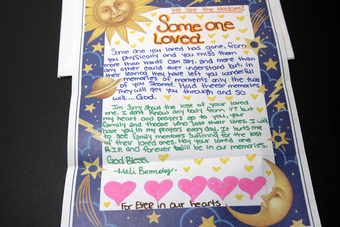 We are the Hokies!
Some one
Loved
Some one you loved has gone, from
you physically and you miss them
more than words can say, and more than
any other could ever understand but, in
their leaving they have left you wonderful
memories of moments only the two
of you shared. Hold these memories
They will get you through and so
will.... God.
I'm sorry about the lose of your loved
one. I don't know any body from VT but
my heart and prayers go to you, your
family and those who lost their lives. I will
have you in my prayers every day. It hurts me
to see family members suffering for the lost
of their loved ones. May your loved one
R.I.P. and forever be in our memories.
God Bless,
-Meli
For Ever in our hearts